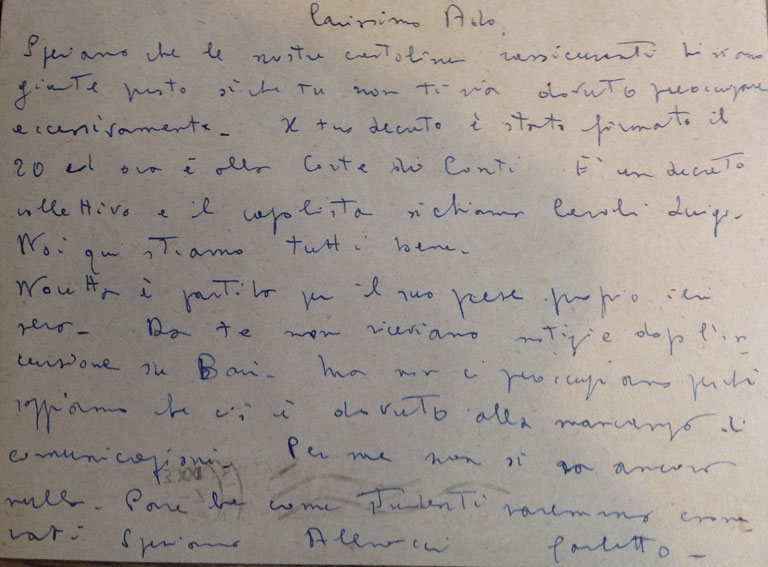 Carissimo Aldo,
Speriamo che le nostre cartoline rassicuranti ti siano
giunte presto sì che tu non ti sia dovuto preoccupare
eccessivamente. Il tuo decreto è stato firmato il
20 ed ora è alla Corte dei Conti. È un decreto
collettivo e il capolista si chiama Ceroli Luigi.
Noi qui stiamo tutti bene.
è partito per il suo paese proprio ieri
sera. Da te non riceviamo notizie dopo l'in
cursione su Bari. Ma non ci preoccupiamo perché
sappiamo che ciò è dovuto alla mancanza di
comunicazioni. Per me non si sa ancora
nulla. Pare che come studenti saremmo esone
rati Speriamo Abbracci Carletto.